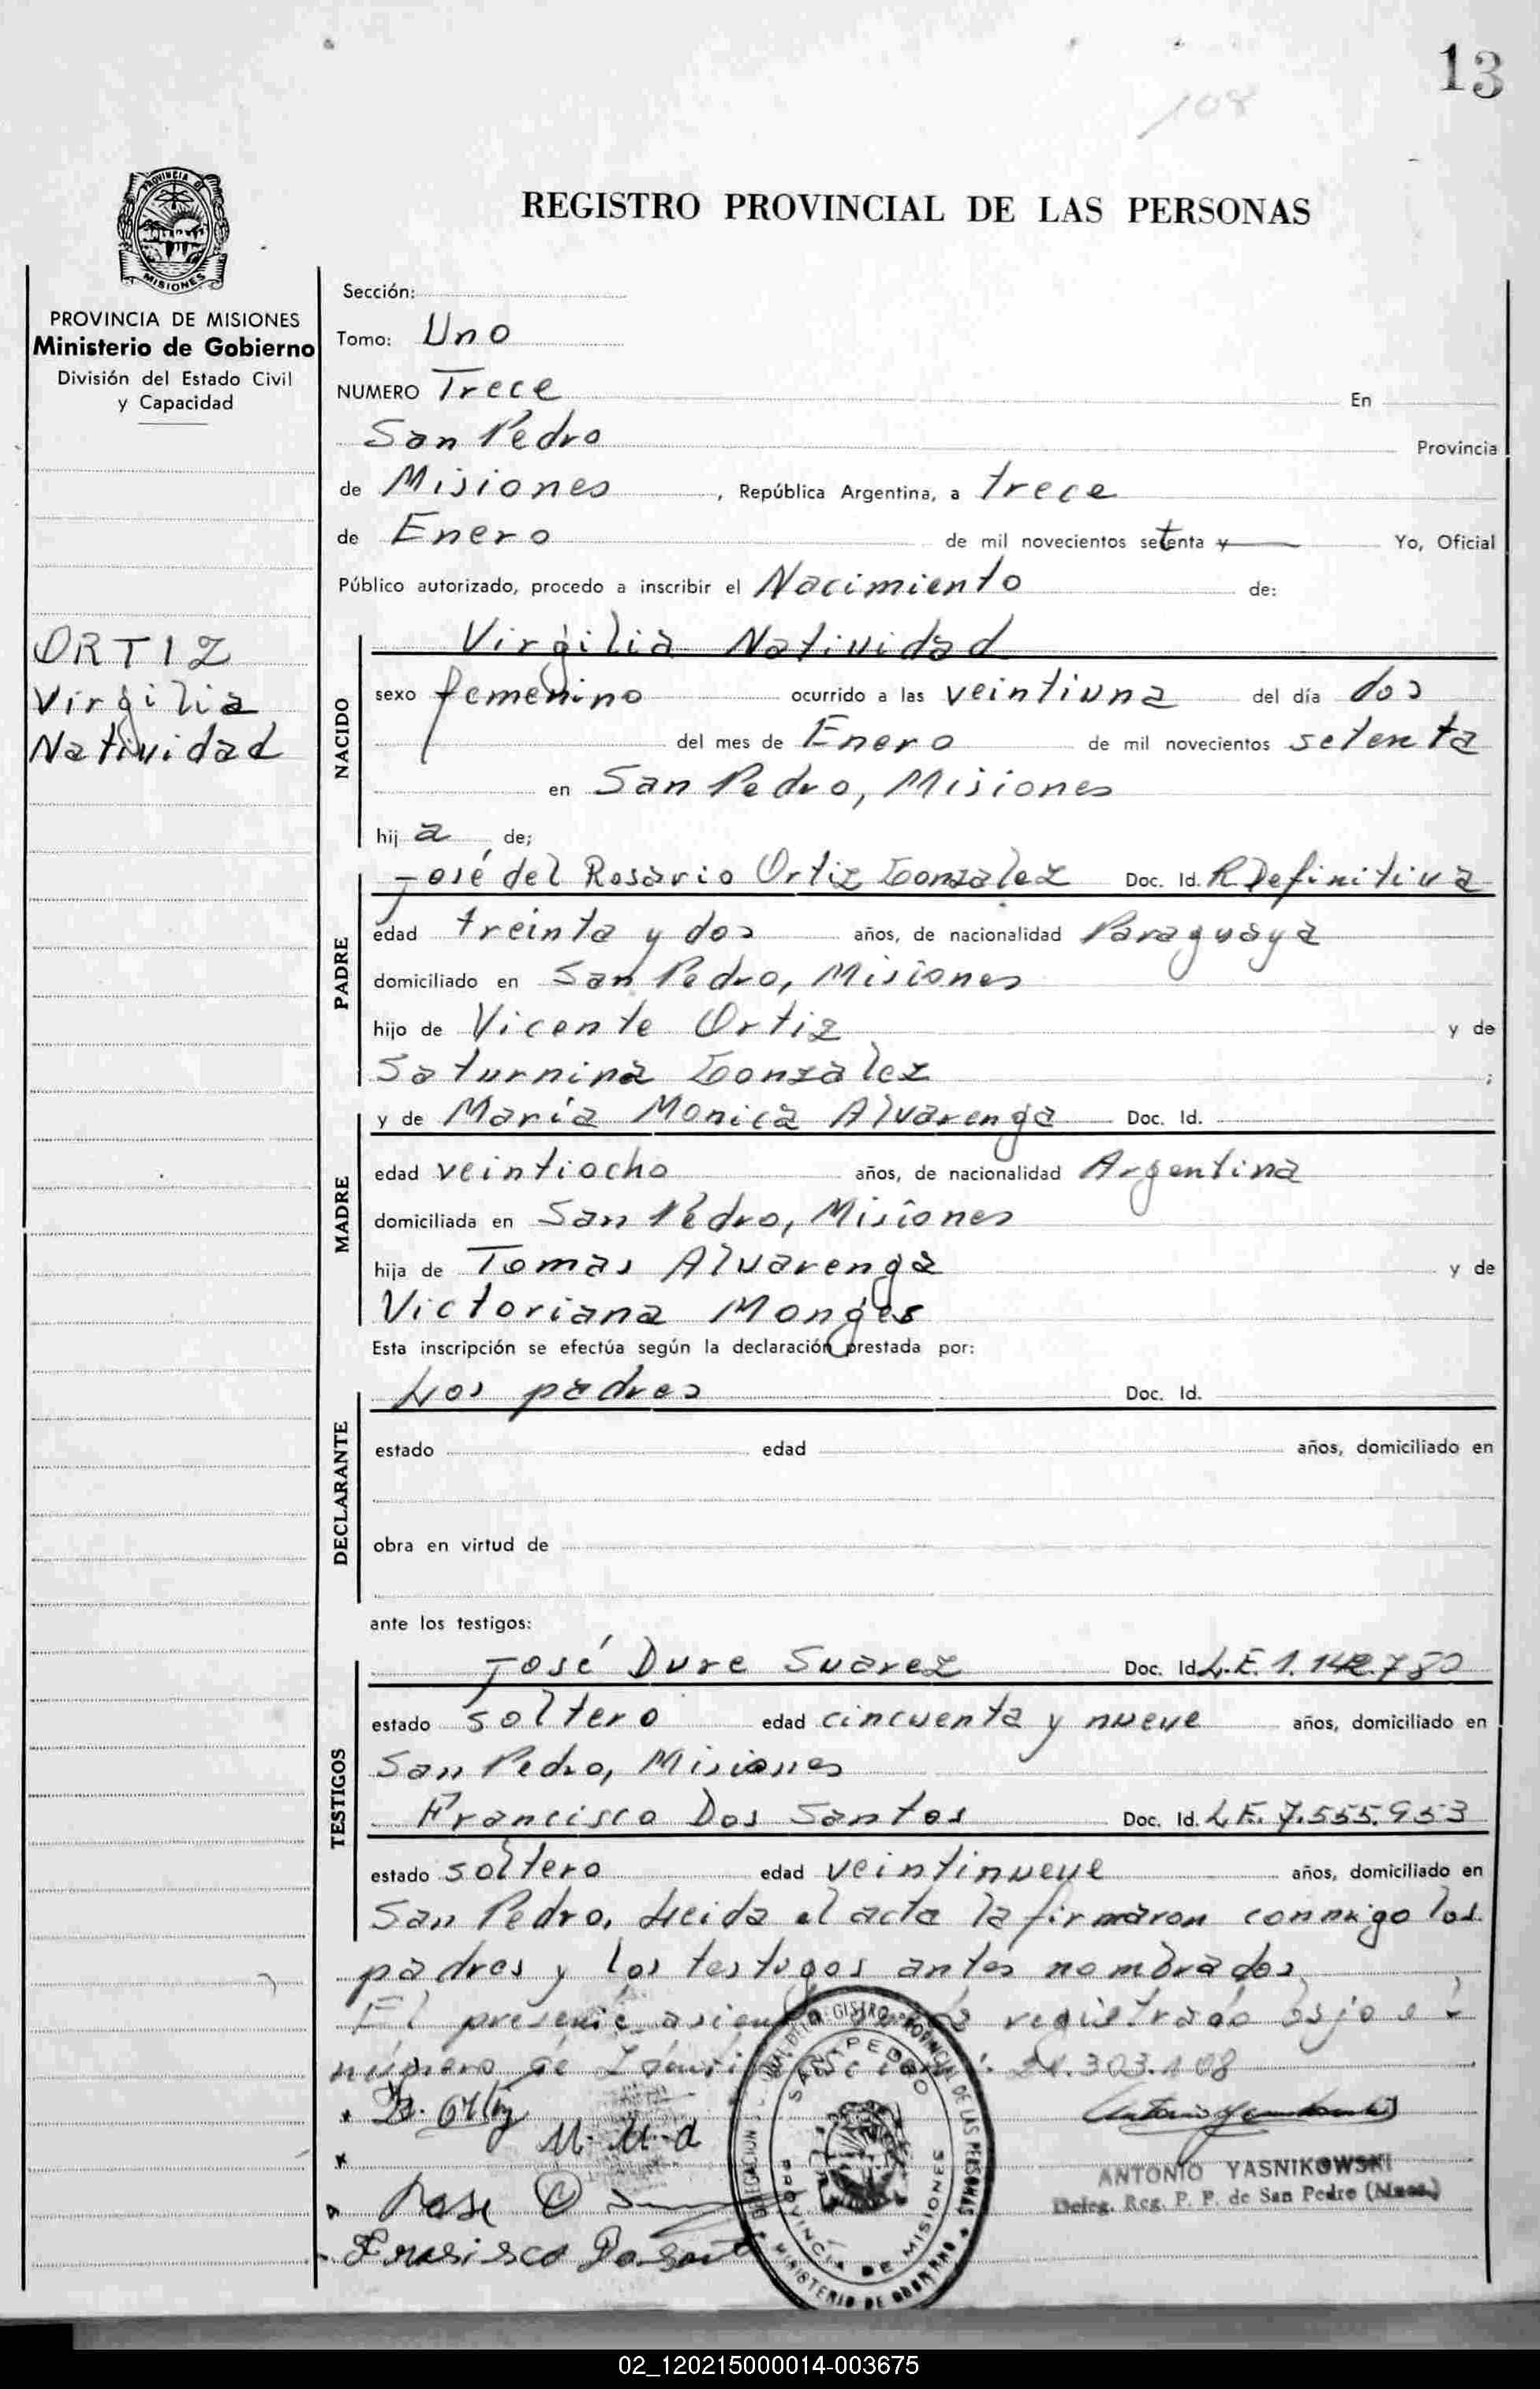 13
108
PROVINCIA DE MISIONES
REGISTRO PROVINCIAL DE LAS PERSONAS
PROVINCIA DE MISIONES
Ministerio de Gobierno
División del Estado Civil
y Capacidad
ORTIZ
Virgilia
Natividad
Sección:
Tomo: Uno
NUMERO Trece En
San Pedro Provincia
de Misiones, República Argentina, a trece
de Enero de mil novecientos setenta y Yo, Oficial
Público autorizado, procedo a inscribir el Nacimiento de:
Virgilia Natividad
NACIDO
sexo femenino ocurrido a las veintiuna del día dos
del mes de Enero de mil novecientos setenta
en San Pedro, Misiones
hija de;
José del Rosario Ortiz Gonzalez Doc. Id. R Definitiva
PADRE
edad treinta y dos años, de nacionalidad Paraguaya
domiciliado en San Pedro, Misiones
hijo de Vicente Ortiz y de
Saturnina Gonzalez ;
y de María Monica Alvarenga Doc. Id.
MADRE
edad veintiocho años, de nacionalidad Argentina
domiciliada en San Pedro, Misiones
hija de Tomas Alvarenga y de
Victoriana Monges
Esta inscripción se efectúa según la declaración prestada por:
Los padres Doc. Id.
DECLARANTE
estado edad años, domiciliado en
obra en virtud de
ante los testigos:
José Dure Suarez Doc. Id. L.E. 1.142.780
TESTIGOS
estado soltero edad cincuenta y nueve años, domiciliado en
San Pedro, Misiones
Francisco Dos Santos Doc. Id. L.E. 7.555.953
estado soltero edad veintinueve años, domiciliado en
San Pedro. Leida el acta la firmaron conmigo los
padres y los testigos antes nombrados
El presente asiento registrado bajo el
número de 21.303.108
M. M. A
Jose
Fransisco
SAN PEDRO
PROVINCIA DE MISIONES
MINISTERIO DE GOBIERNO
ANTONIO YASNIKOWSKI
Deleg. Reg. P. P. de San Pedro (Mnes.)
02_120215000014-003675